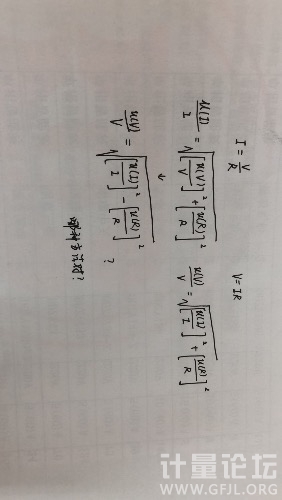 I = V/R
u(I)/I = √([u(V)/V]² + [u(R)/R]²)
↓
u(V)/V = √([u(I)/I]² - [u(R)/R]²) ?
V = IR
u(V)/V = √([u(I)/I]² + [u(R)/R]²)
哪种方法对?
计量论坛
WWW.GFJL.ORG